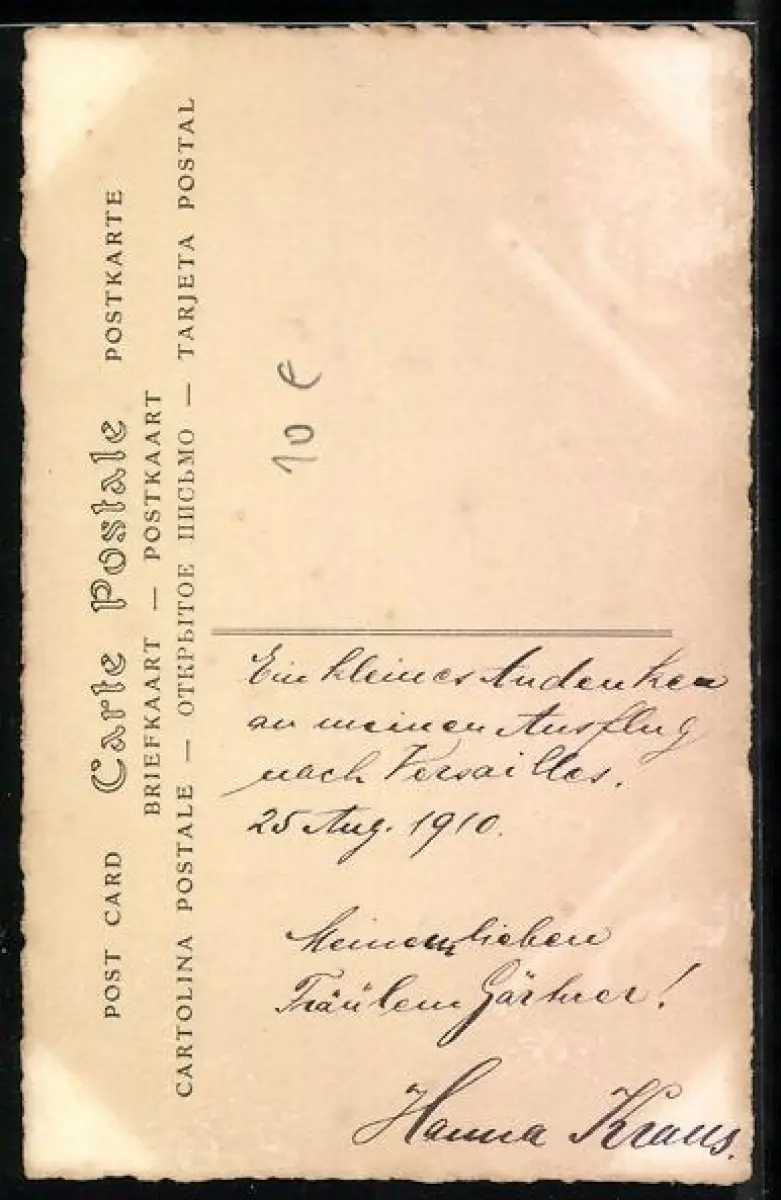 POST CARD Carte Postale POSTKARTE
BRIEFKAART — POSTKAART
CARTOLINA POSTALE — ОТКРЫТОЕ ПИСЬМО — TARJETA POSTAL
10 €
Ein kleines Andenken
an meinen Ausflug
nach Versailles.
25 Aug. 1910.
Meinem lieben
Fräulein Gärtner!
Hanna Kraus.